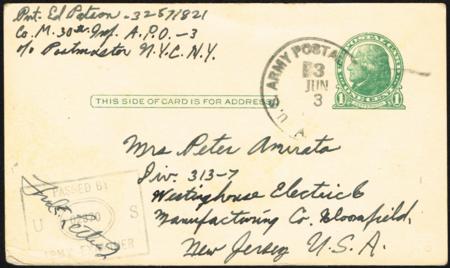 Pvt. Ed Patson - 32571821
Co. M. 30th Inf. A.P.O. - 3
c/o Postmaster N.Y.C. N.Y.
U.S. ARMY POSTAL
JUN
3
1 1
THIS SIDE OF CARD IS FOR ADDRESS
Mrs Peter Amirata
Div. 313-7
Westinghouse Electric &
Manufacturing Co. Bloomfield,
New Jersey U.S.A.
PASSED BY
U S
ARMY EXAMINER